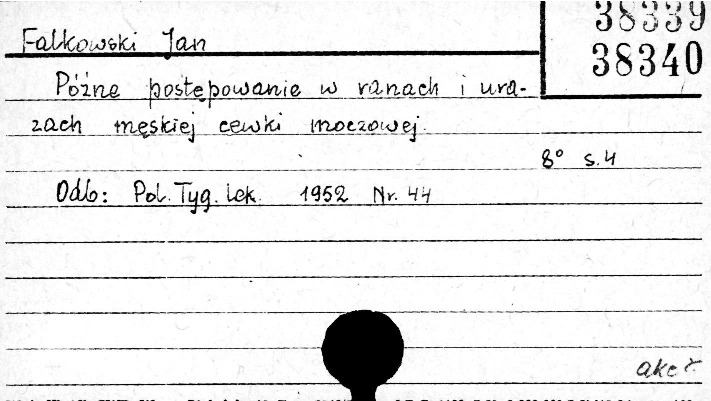 38339
Falkowski Jan
38340
Późne postępowanie w ranach i ura-
zach męskiej cewki moczowej.
8° s.4
Odb: Pol. Tyg. lek. 1952 Nr. 44